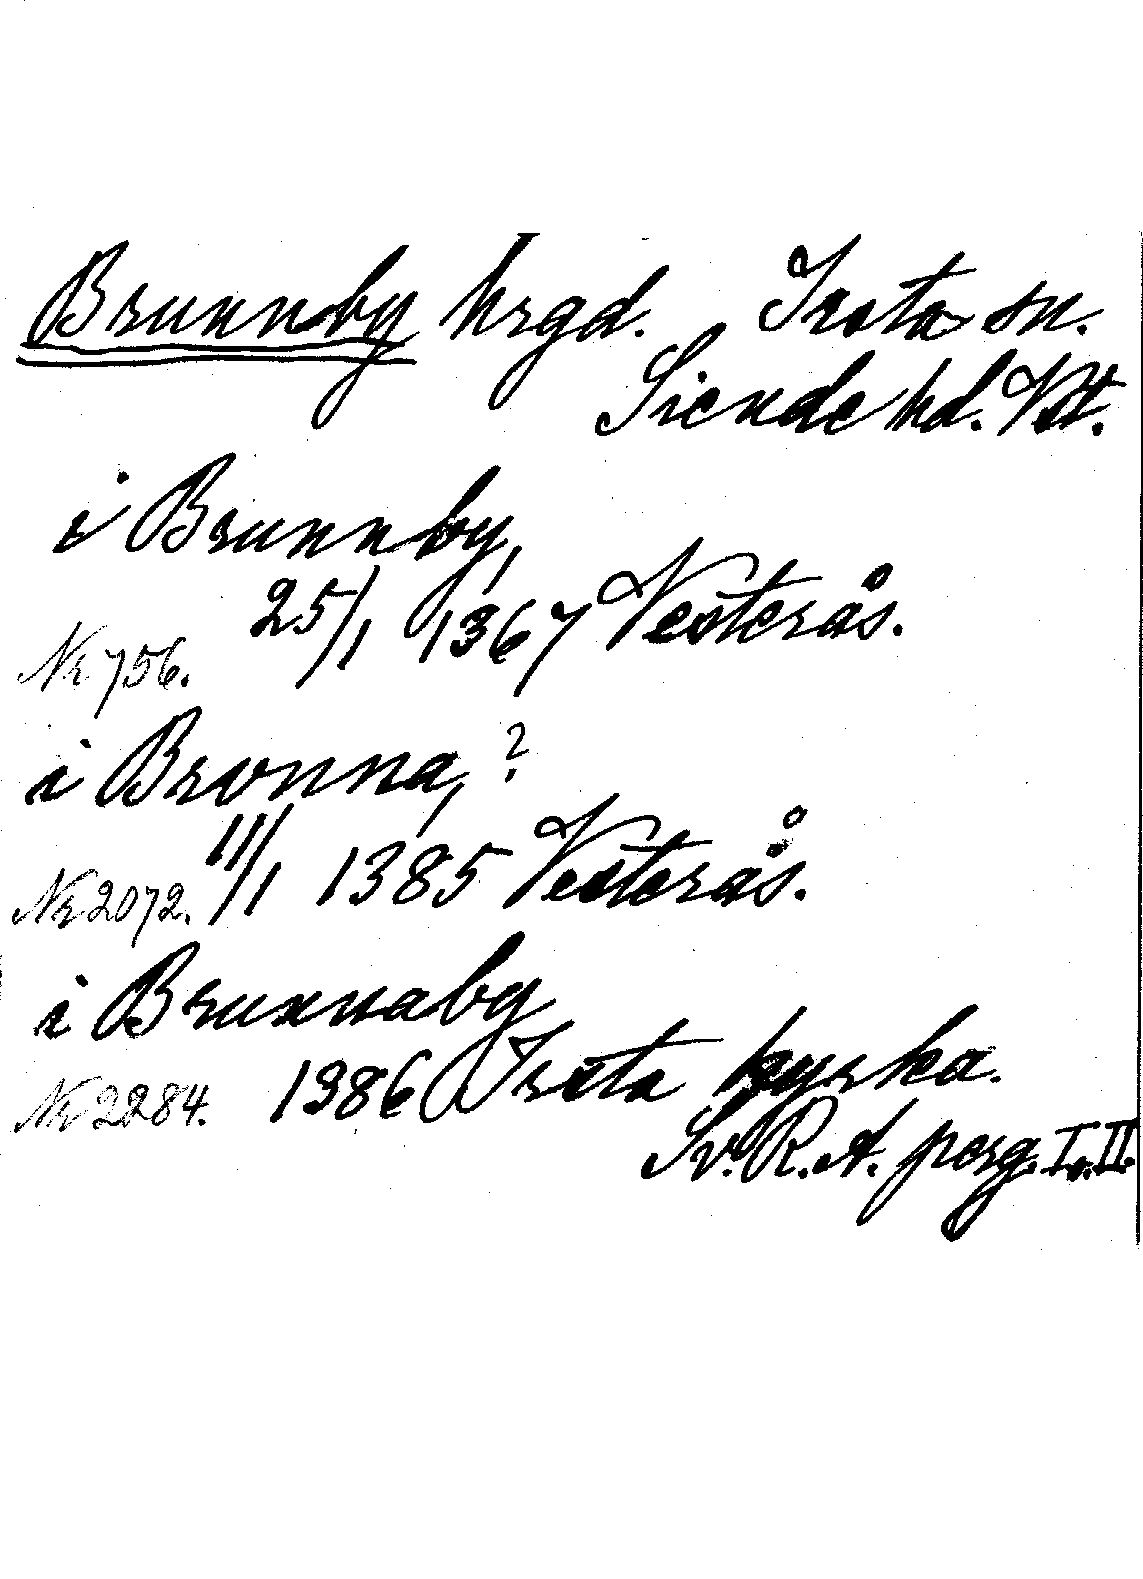 Brunnby hrgd. Irsta sn.
Siende hd. Vstt.
i Brunnby,
25/1 1367 Vesterås.
Nr 756.
i Brvnna, ?
11/1 1385 Vesterås.
Nr 2072.
i Brunnaby
Nr 2284. 1386 Irsta kyrka.
Sv. R. A. perg. I o. II.